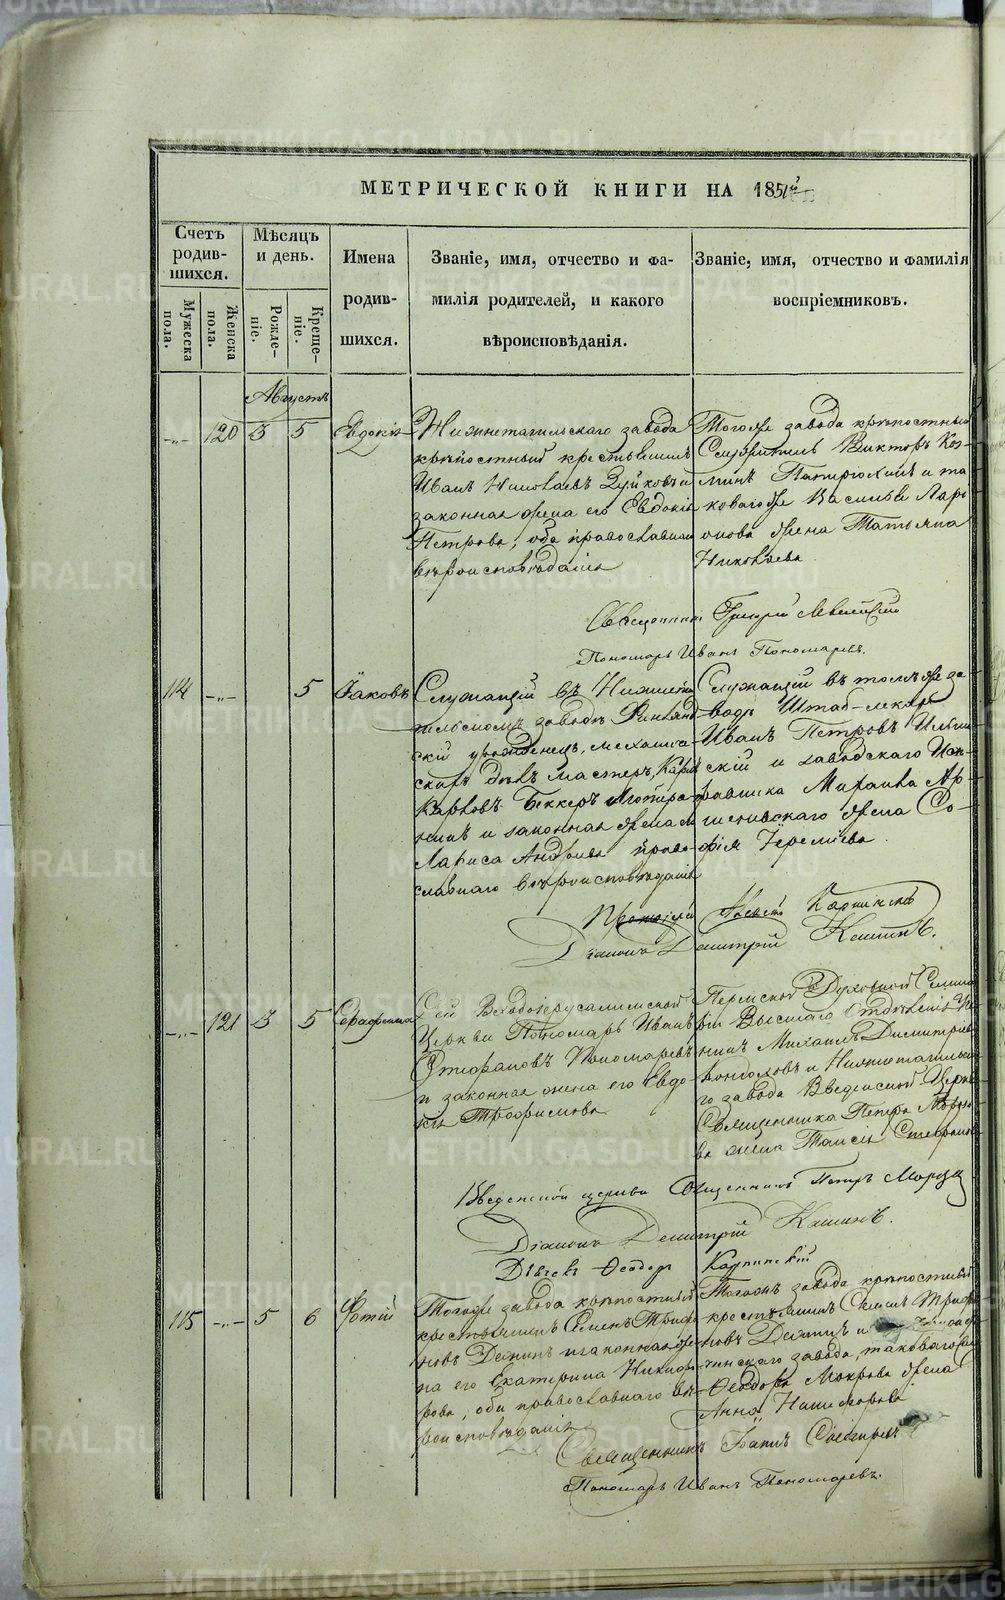 МЕТРИЧЕСКОЙ КНИГИ НА 1851й
Счетъ родив-шихся.
Мѣсяцъ и день.
Имена родив-шихся.
Званіе, имя, отчество и фа-
милія родителей, и какого
вѣроисповѣданія.
Званіе, имя, отчество и фамилія
воспріемниковъ.
Мужеска пола.
Женска пола.
Рожде-ніе.
Креще-ніе.
Августъ
-„- 120 3 5 Евдокія
Нижнетагильскаго завода
крѣпостный крестьянинъ
Иванъ Николаевъ Зуйковъ и
законная жена его Евдокія
Петрова, оба православнаго
вѣроисповѣданія
Тогоже завода крѣпостный
Служитель Викторъ Коз-
минъ и та
ковагоже Василья Лари
онова жена Татьяна
Николаева
Священникъ Григорій
Пономарь Иванъ Пономаревъ.
114 -„- 5 Іаковъ
Служащій въ Нижнета
гильскомъ заводѣ Финлянд
скій уроженецъ, механиче-
скихъ дѣлъ мастеръ, Карлъ
Карловъ Беккеръ Лютера-
нинъ и законная жена
Лариса Андреева право-
славнаго вѣроисповѣданія
Служащій въ томъ же за-
водѣ Штаб-лекарь
Иванъ Петровъ
скій и заводскаго Исп-
равника Михаила Ар
жена Со-
фія Іереміева.
Протоіерей Карпинскій
Діаконъ Димитрій Кашинъ.
-„- 121 3 5 Серафима
Сей Входоіерусалимской
Церкви Пономарь Иванъ
Стефановъ Пономаревъ
и законная жена его Евдо
кія Трофимова
Пермской Духовной Семина
ріи Высшаго Отдѣленія Уче
никъ Михаилъ Димитріевъ
и Нижнетагильска
го завода Введенской Церкви
Священника Петра Морозо
ва жена Таисія Стефанова
Введенской церкви Священникъ Петръ Морозовъ
Діаконъ Димитрій Кашинъ.
Дьячекъ Ѳеодоръ Карпинскій
115 -„- 5 6 Фотій
Тогоже завода крѣпостный
крестьянинъ Семенъ Трифо
новъ Деминъ и законная же
на его Екатерина Никифо
рова, оба православнаго вѣ-
роисповѣданія
Тогожъ завода крѣпостный
крестьянинъ Трифо
новъ Деминъ и
завода, таковагоже
Ѳеодора Мокрова жена
Анна Никифорова
Священникъ Іоаннъ
Пономарь Иванъ Пономаревъ.
METRIKI.GASO-URAL.RU